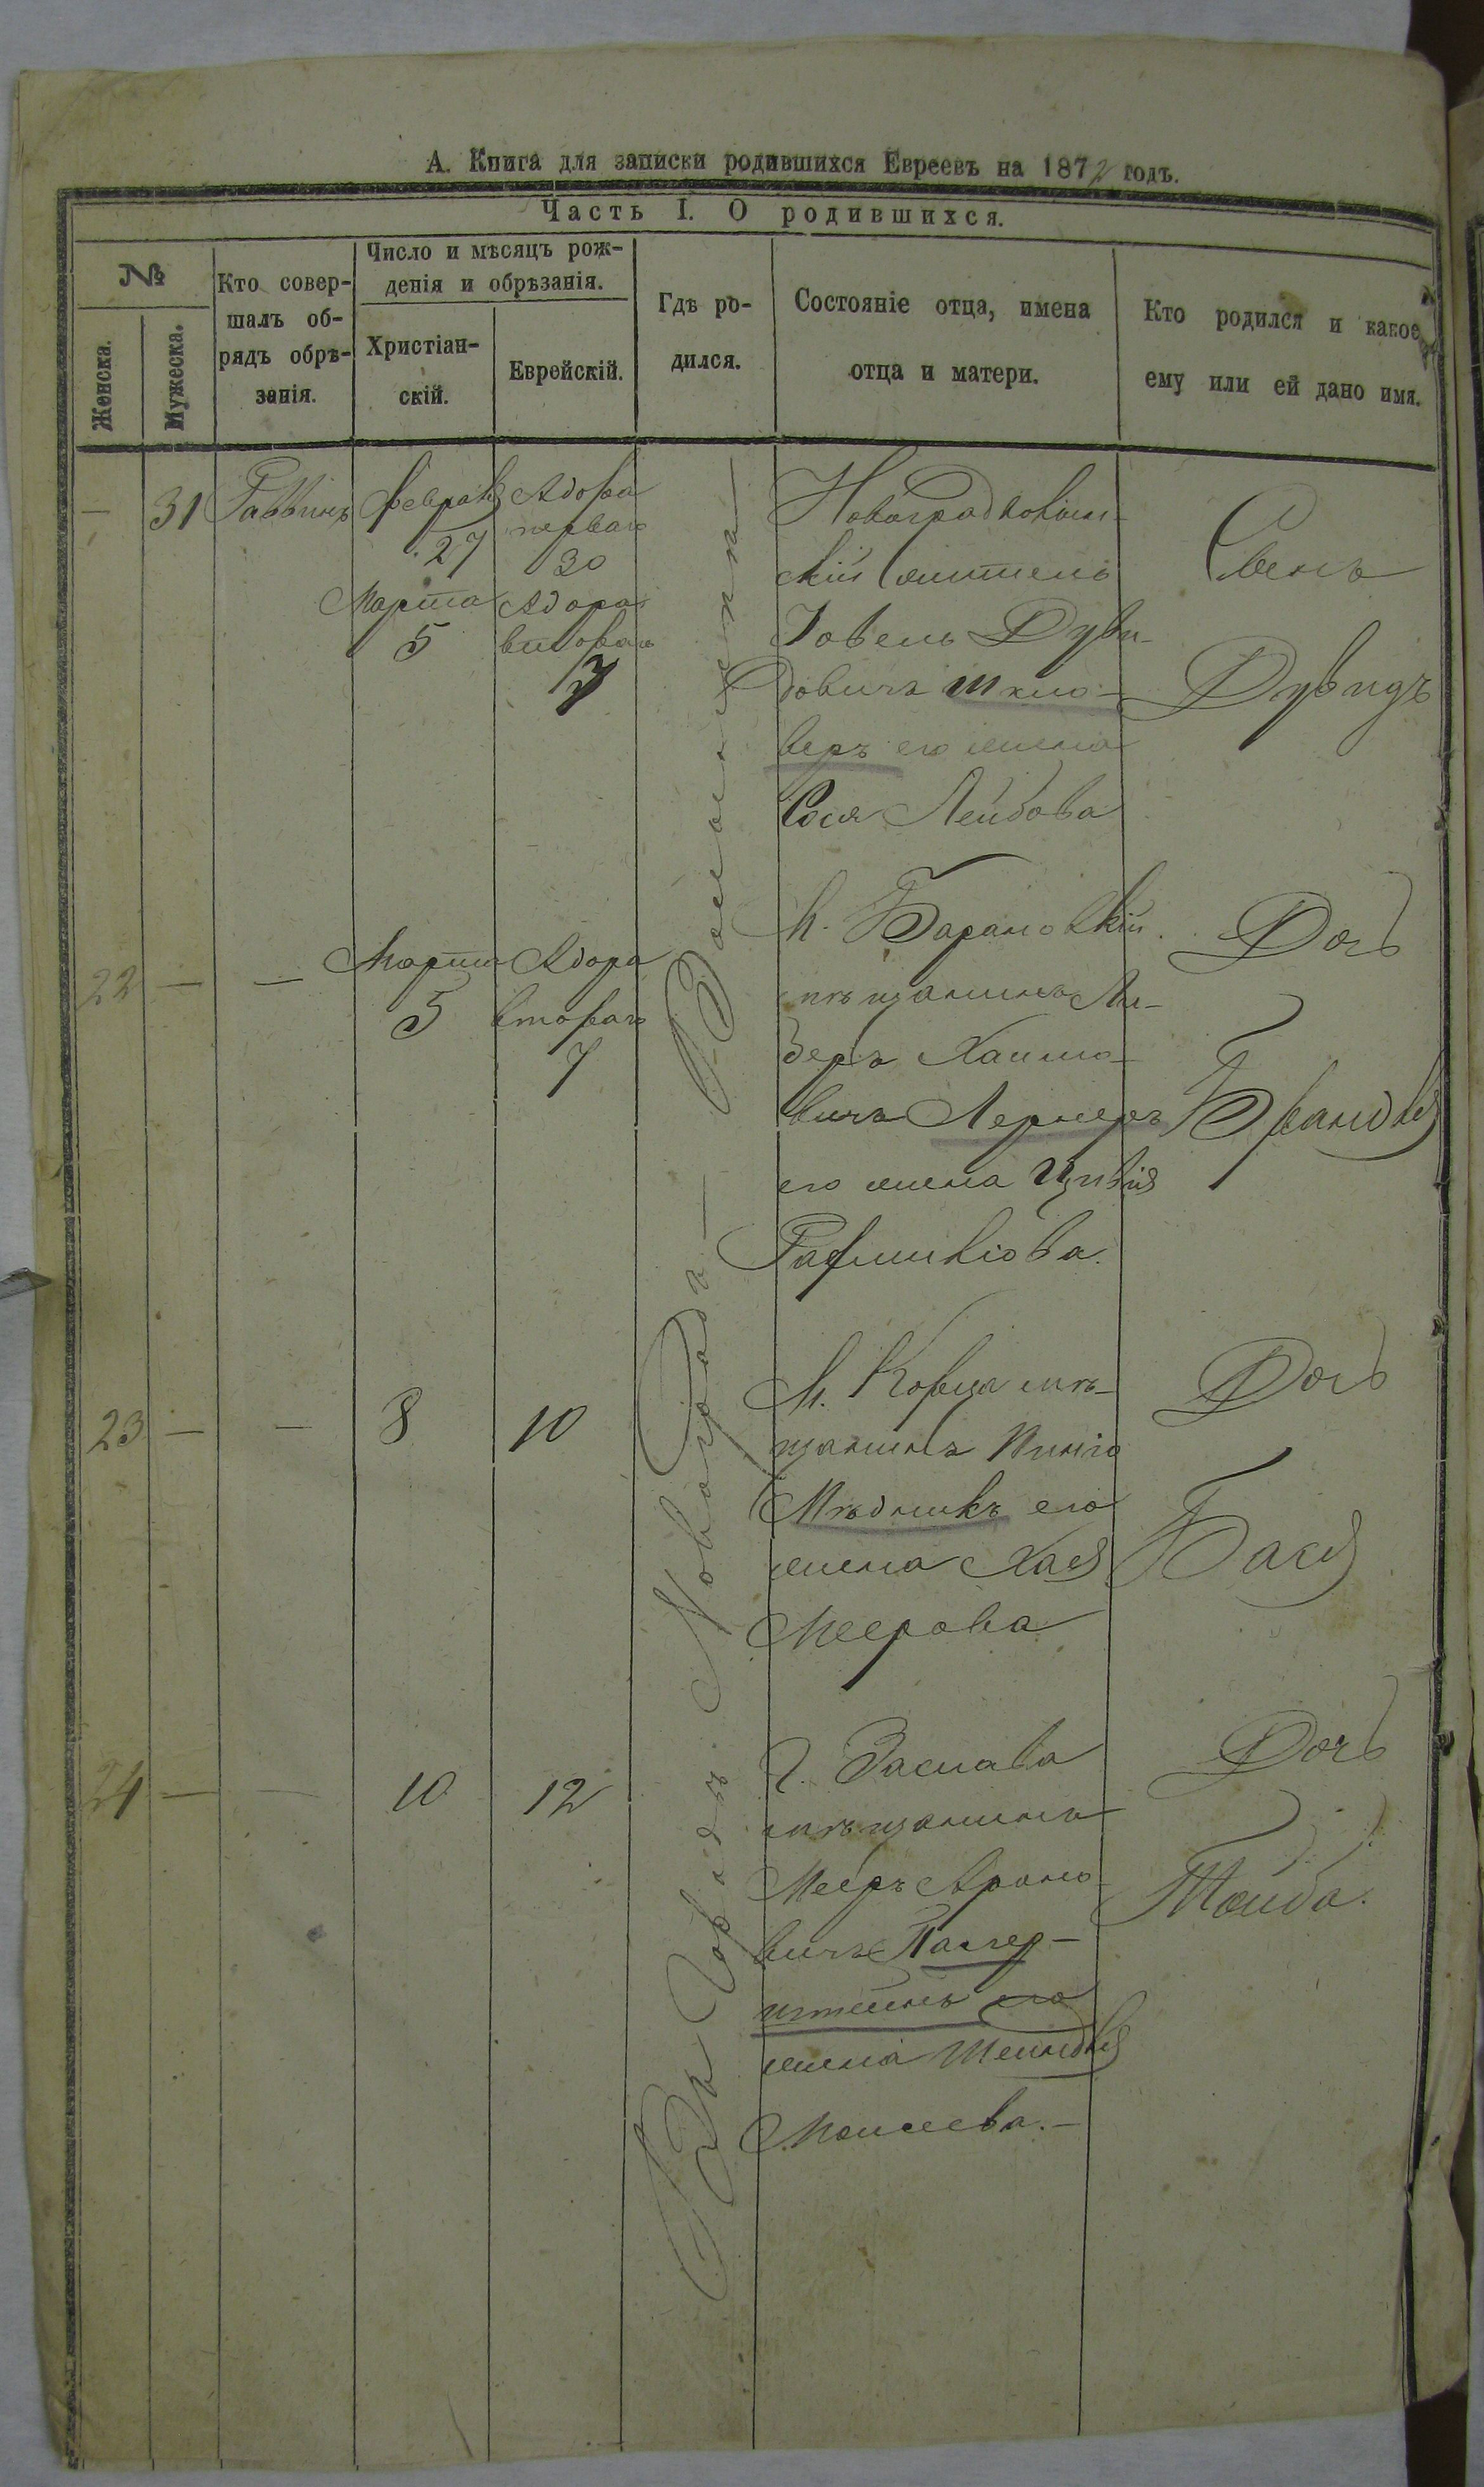 А. Книга для записки родившихся Евреевъ на 1872 годъ.
Часть I. О родившихся.
№
Женска.
Мужеска.
Кто совер-
шалъ об-
рядъ обрѣ-
занія.
Число и мѣсяцъ рож-
денія и обрѣзанія.
Христіан-
скій.
Еврейскій.
Гдѣ ро-
дился.
Состояніе отца, имена
отца и матери.
Кто родился и какое
ему или ей дано имя.
— 31 Раввинъ
Февраля
27
Марта
5
Адора
перваго
30
Адора
втораго
7
Въ Городѣ Новоградѣ — Волынскѣ —
Новоградволын-
скій житель
Іовель Дуви-
довичъ Шкло-
веръ его жена
Сося Лейбова
Сынъ
Дувидъ
22 — —
Марта
5
Адора
втораго
7
М. Барановки
мѣщанинъ Ли-
беръ Хаимо-
вичъ Лернеръ
его жена Цивія
Дочь
Брандля
23 — — 8 10
М. Корца мѣ-
щанинъ
Мѣдникъ его
жена Хая
Меерова
Дочь
Бася
24 — — 10 12
Г. Заслава
мѣщанинъ
Мееръ Ароно-
вичъ
штейнъ его
жена Шейндля
Моисеева. —
Дочь
Тойба.